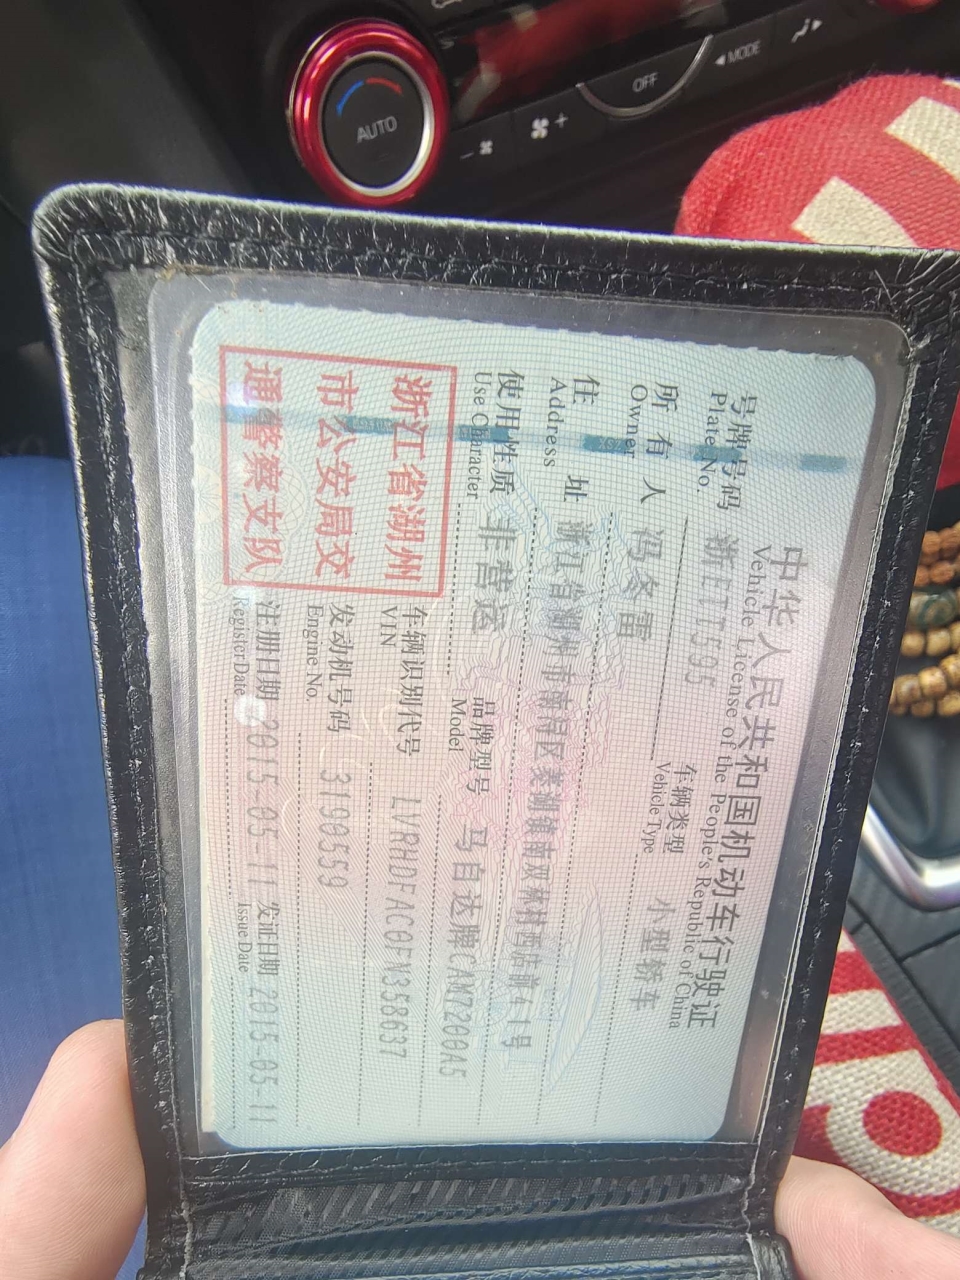 AUTO
OFF
MODE
中华人民共和国机动车行驶证
Vehicle License of the People's Republic of China
号牌号码 浙ETT595 车辆类型 小型轿车
Plate No. Vehicle Type
所有人 冯冬雷
Owner
住址 浙江省湖州市南浔区菱湖镇南双林村西姑前41号
Address
使用性质 非营运 品牌型号 马自达牌CAM7200A5
Use Character Model
浙江省湖州
市公安局交
通警察支队
车辆识别代号 LVRHDFAC0FN358637
VIN
发动机号码 3190559
Engine No.
注册日期 2015-05-11 发证日期 2015-05-11
Register Date Issue Date